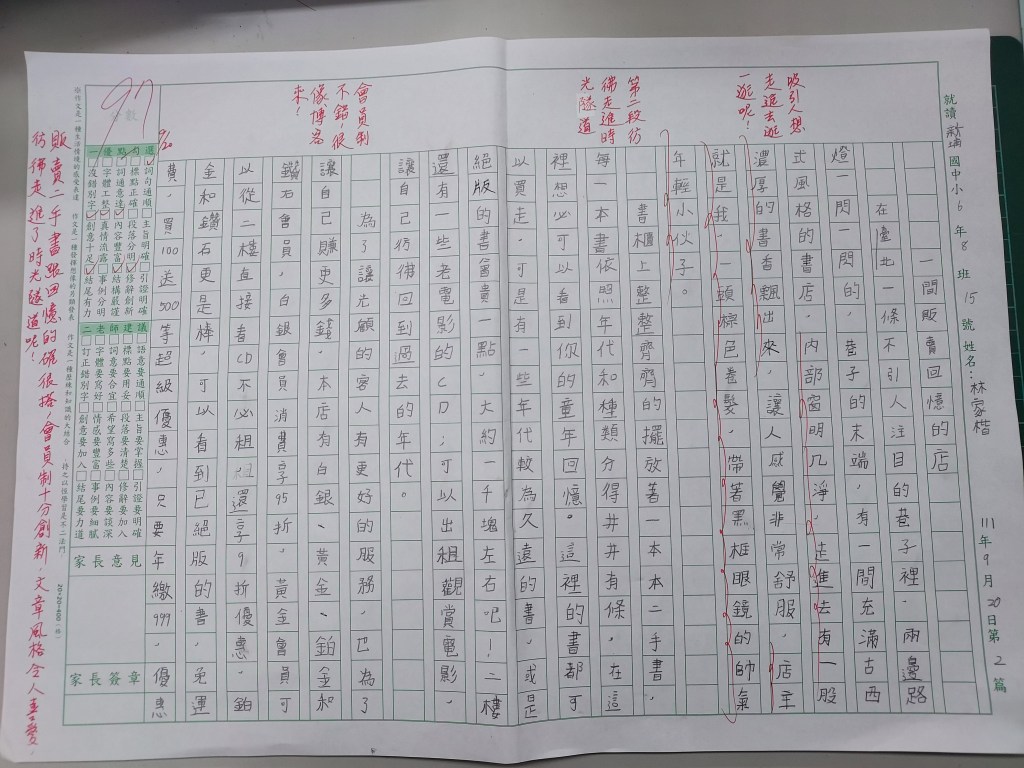 就讀 新埔 國中小 6 年 8 班 15 號 姓名：林家楷
111年 9 月 20 日第 2 篇
一間販賣回憶的店
在臺北一條不引人注目的巷子裡，兩邊路
燈一閃一閃的，巷子的末端，有一間充滿古西
式風格的書店，內部窗明几淨，走進去有一股
濃厚的書香飄出來，讓人感覺非常舒服，店主
就是我，一頭棕色卷髮，帶著黑框眼鏡的帥氣
年輕小伙子。
書櫃上整整齊齊的擺放著一本本二手書，
每一本書依照年代和種類分得井井有條，在這
裡想必可以看到你的童年回憶。這裡的書都可
以買走，可是有一些年代較為久遠的書，或是
絕版的書會貴一點，大約一千塊左右吧！二樓
還有一些老電影的CD；可以出租觀賞電影，
讓自己彷彿回到過去的年代。
為了讓光顧的客人有更好的服務，也為了
讓自己賺更多錢，本店有白銀、黃金、鉑金和
鑽石會員，白銀會員消費享95折，黃金會員可
以從二樓直接看CD不必租，還享9折優惠，鉑
金和鑽石更是棒，可以看到已絕版的書，免運
費，買100送500等超級優惠，只要年繳999，優惠
吸引人想
走進去逛
一逛呢！
第二段彷
彿走進時
光隧道
會員制
不錯，很
像傳客
來！
9/20
97
分數
選
詞句通順
主旨明確
引證明確
標點正確
段落分明
修辭創新
詞通意達
內容豐富
結構嚴謹
字體工整
真情流露
事例分明
沒錯別字
創意十足
結尾有力
一優點勾選
二老師建議
語意要通順
主旨要掌握
引證要明確
標點要用妥
段落要清楚
修辭要加入
詞意要合宜
希望寫多些
內容要談深
字體要寫好
情感要豐富
事例要細膩
訂正錯別字
創意要加入
結尾要力道
家長意見
家長簽章
20×20=400（格）
販賣二手書跟回憶的確很搭，會員制十分創新，文章風格令人喜愛，
彷彿走進了時光隧道呢！